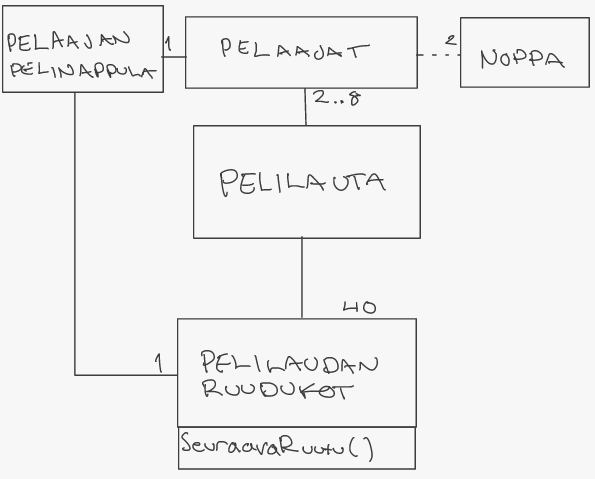 PELAAJAN
PELINAPPULA
1
PELAAJAT
2
NOPPA
2..8
PELILAUTA
40
1
PELILAUDAN
RUUDUKOT
SeuraavaRuutu()